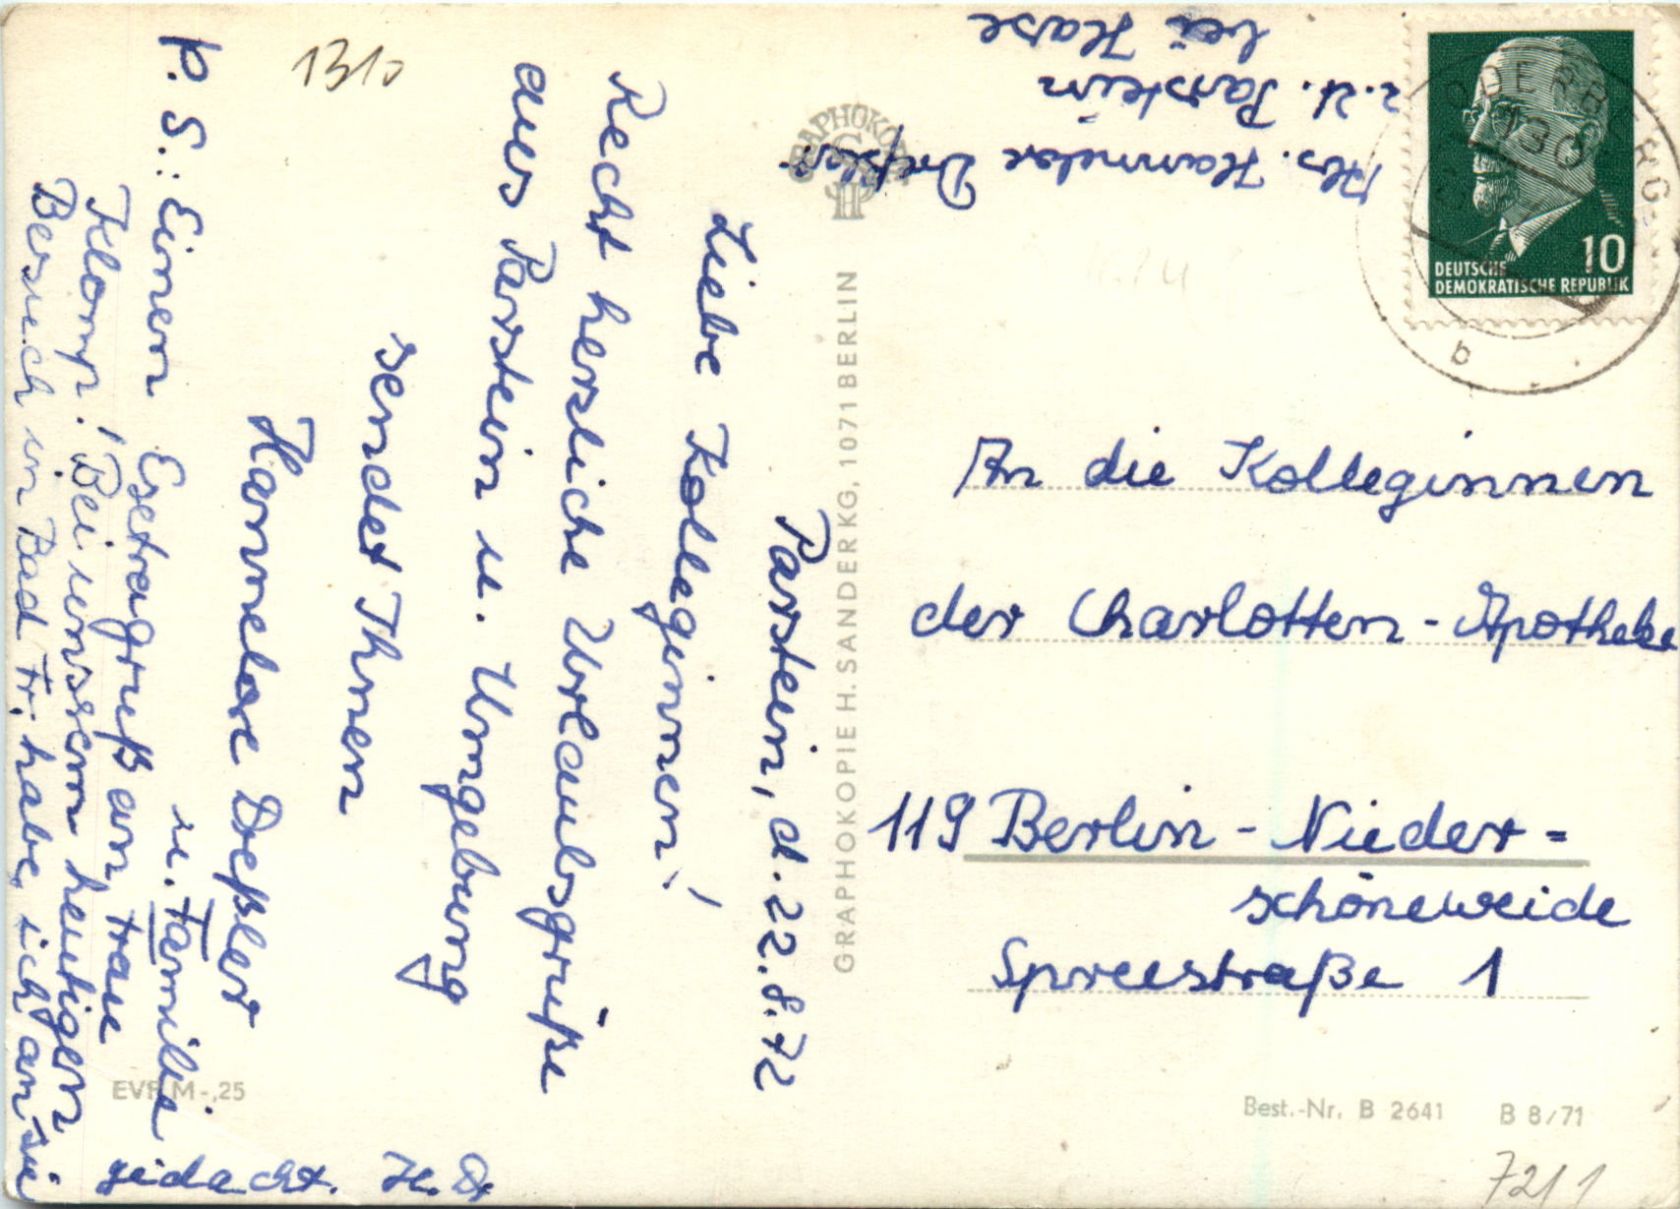 Abs. Hannelore Dreßler
z. Zt. Parstein
bei Hase
Parstein, d. 22.8.72
Liebe Kolleginnen!
Recht herzliche Urlaubsgrüße
aus Parstein u. Umgebung
sendet Ihnen
Hannelore Dreßler
u. Familie
P.S.: Einen Extragruß an Frau
Klomp! Bei unserem heutigen
Besuch in Bad Fr. habe ich an sie
gedacht. H. D.
1310
An die Kolleginnen
der Charlotten-Apotheke
119 Berlin - Nieder=
schöneweide
Spreestraße 1
DEUTSCHE
DEMOKRATISCHE REPUBLIK
10
ODERBERG
b
GRAPHOKOPIE
GRAPHOKOPIE H. SANDER KG, 1071 BERLIN
EVP M -,25
Best.-Nr. B 2641
B 8/71
721 1